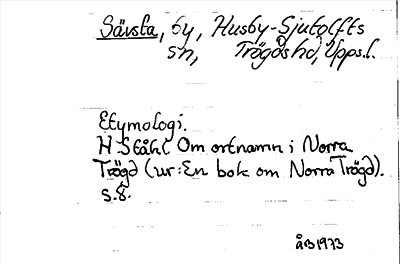 Sävsta, by, Husby-Sjutolfts
sn, Trögds hd, Upps.l.
Etymologi.
H Ståhl Om ortnamn i Norra
Trögd (ur: En bok om Norra Trögd).
s.8.
ÅB 1973